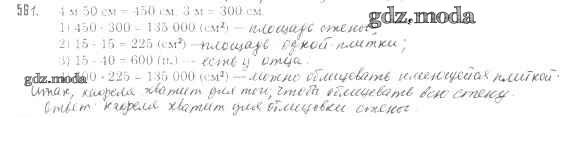 561. 4 м 50 см = 450 см. 3 м = 300 см.
1) 450 · 300 = 135 000 (см²) – площадь стены;
gdz.moda
2) 15 · 15 = 225 (см²) – площадь одной плитки;
3) 15 · 40 = 600 (п.) – есть у отца.
gdz.moda 0 · 225 = 135 000 (см²) – можно облицевать имеющейся плиткой.
Итак, кафеля хватит для того, чтобы облицевать всю стену.
Ответ: кафеля хватит для облицовки стены.